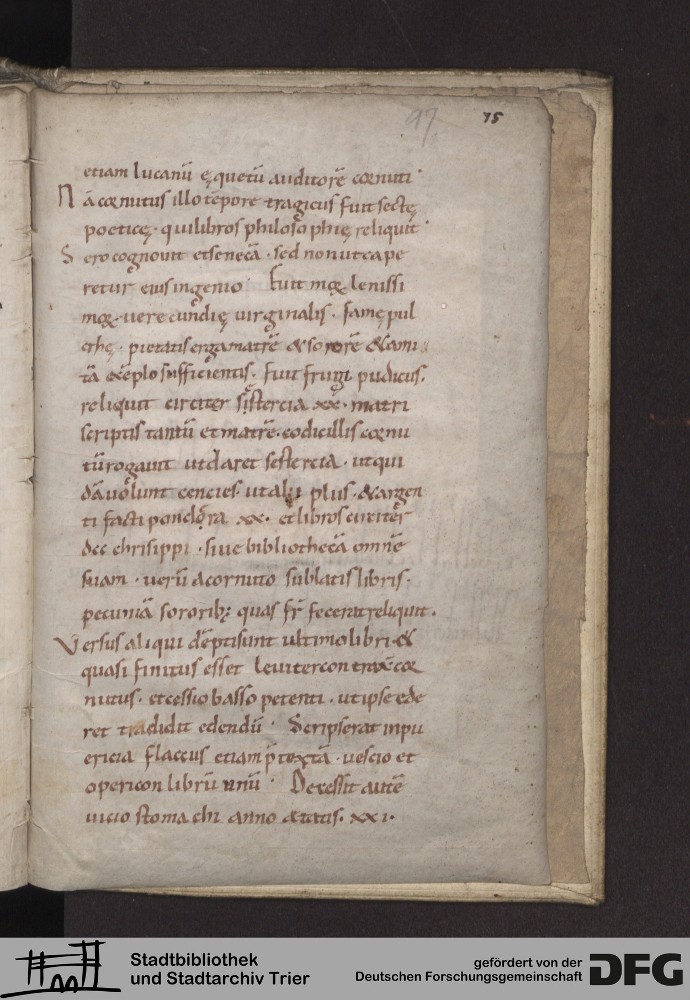 97
75
etiam lucanū ęquetū auditorē cornuti·
Nā cornutus illo tēpore tragicus fuit sectę
poeticę· qui libros philosophię reliquit·
Sero cognouit et senecā · sed non ut cape
retur eius ingenio· Fuit morū lenissi
morū· uerecundię uirginalis· famę pul
chrę· pietatis erga matrē & sororē & ami
tā exēplo sufficientis· fuit frugi pudicus·
reliquit circiter sistercia xx· matri
scriptis tantū et matrē· codicillis cornu
tū rogauit ut daret sestercia · ut qui
dā uolunt cencies· ut alii plus· & argen
ti facti pondera xx· et libros circiter
dcc chrisippi · siue bibliothecā omnē
suam · uerū a cornuto sublatis libris·
pecuniā sororibꝫ quas fr̄ fecerat reliquit·
Versus aliqui dēpti sunt ultimo libri· &
quasi finitus esset leuiter contraxit cor
nutus· et cessio basso petenti · ut ipse ede
ret tradidit edendū · Scripserat in pu
ericia flaccus etiam p̄textā · uescio et
opericon librū unū · Decessit autē
uicio stomachi anno ętatis· xxi·
Stadtbibliothek
und Stadtarchiv Trier
gefördert von der
Deutschen Forschungsgemeinschaft
DFG